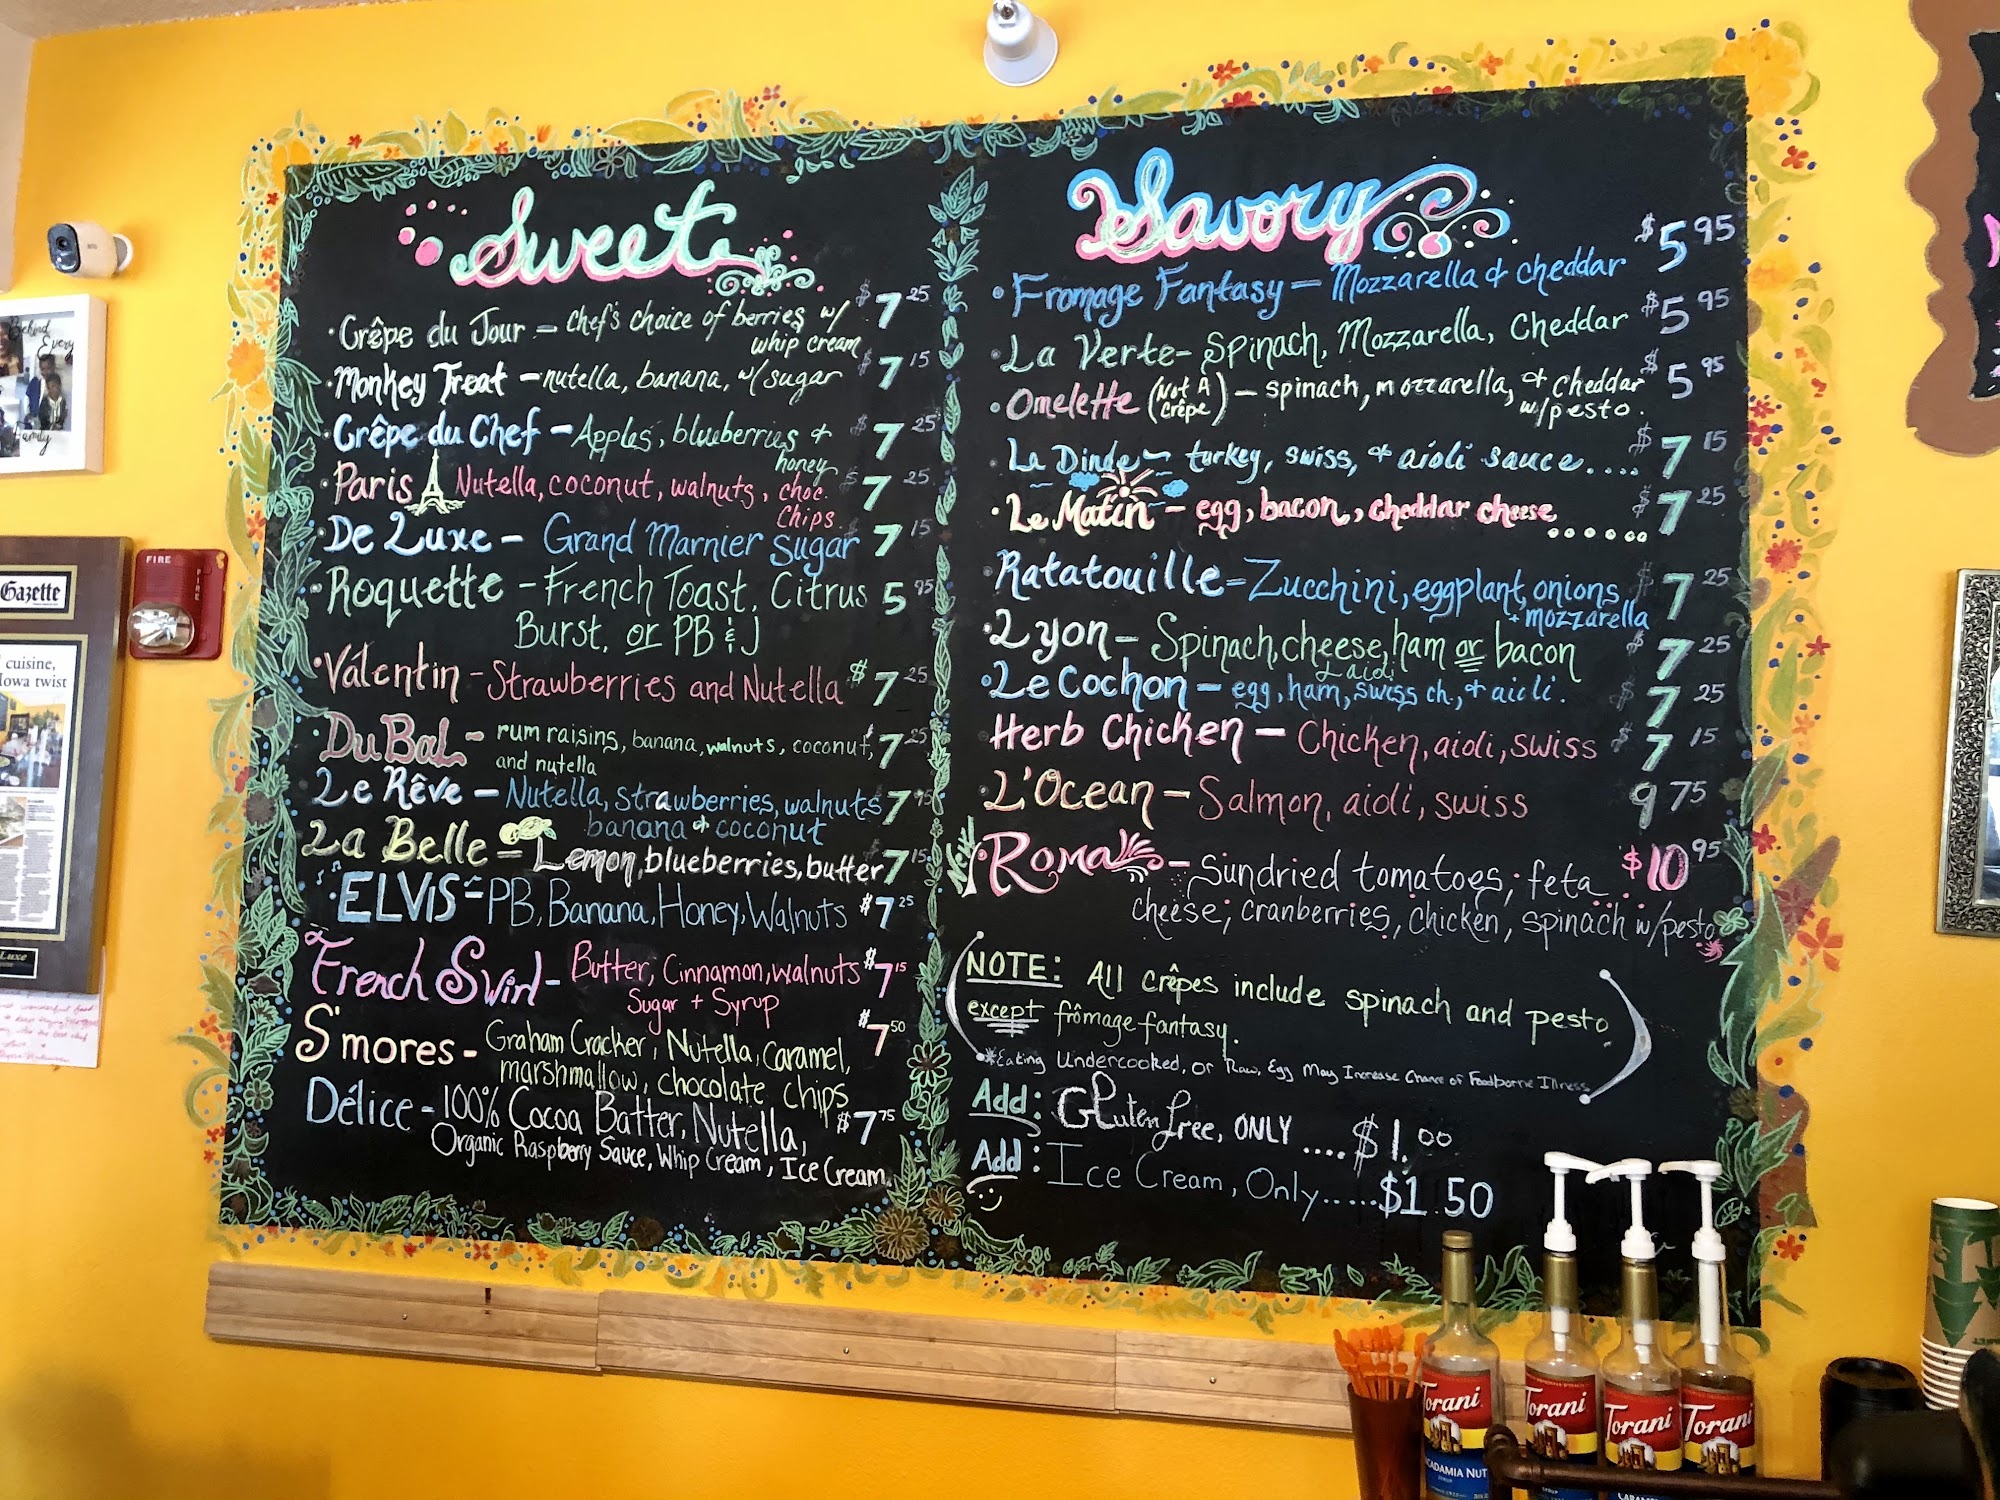 Sweet
• Crêpe du Jour – chef's choice of berries w/ $7 25
whip cream
• Monkey Treat – nutella, banana, w/ sugar $7 15
• Crêpe du Chef – Apples, blueberries & $7 25
honey
• Paris Nutella, coconut, walnuts, choc. $7 25
chips
• De Luxe – Grand Marnier Sugar 7 15
• Roquette – French Toast, Citrus 5 95
Burst, or PB & J
• Valentin – Strawberries and Nutella $7 25
• Du Bal – rum raisins, banana, walnuts, coconut, $7 25
and nutella
• Le Rêve – Nutella, strawberries, walnuts 7 95
banana & coconut
La Belle – Lemon, blueberries, butter 7 15
ELVIS – PB, Banana, Honey, Walnuts $7 25
French Swirl – Butter, Cinnamon, walnuts $7 15
Sugar + Syrup
S'mores – Graham Cracker, Nutella, Caramel, $7 50
marshmallow, chocolate chips
Délice – 100% Cocoa Batter, Nutella, $7 75
Organic Raspberry Sauce, Whip Cream, Ice Cream.
Savory
• Fromage Fantasy – Mozzarella & cheddar $5 95
• La Verte – Spinach, Mozzarella, Cheddar $5 95
• Omelette (Not A Crêpe) – spinach, mozzarella, & cheddar $5 95
w/ pesto.
• La Dinde – turkey, swiss, & aioli sauce.... $7 15
• Le Matin – egg, bacon, cheddar cheese...... $7 25
• Ratatouille – Zucchini, eggplant, onions, $7 25
+ mozzarella
• Lyon – Spinach, cheese, ham or bacon $7 25
& aioli
• Le Cochon – egg, ham, swiss ch., & aioli. $7 25
• Herb Chicken – Chicken, aioli, swiss $7 15
• L'Ocean – Salmon, aioli, swiss 9 75
New
• Roma – Sundried tomatoes, feta $10 95
cheese, cranberries, chicken, spinach w/ pesto
NOTE: All crêpes include spinach and pesto
except frômage fantasy.
*Eating Undercooked, or Raw, Egg May Increase Chance of Foodborne Illness
Add: Gluten free, ONLY ....$1.00
Add: Ice Cream, Only.....$1.50
Behind
Every
Family
Gazette
cuisine,
Iowa twist
Luxe
FIRE
FIRE
Torani
Torani
Torani
Torani
MACADAMIA NUT